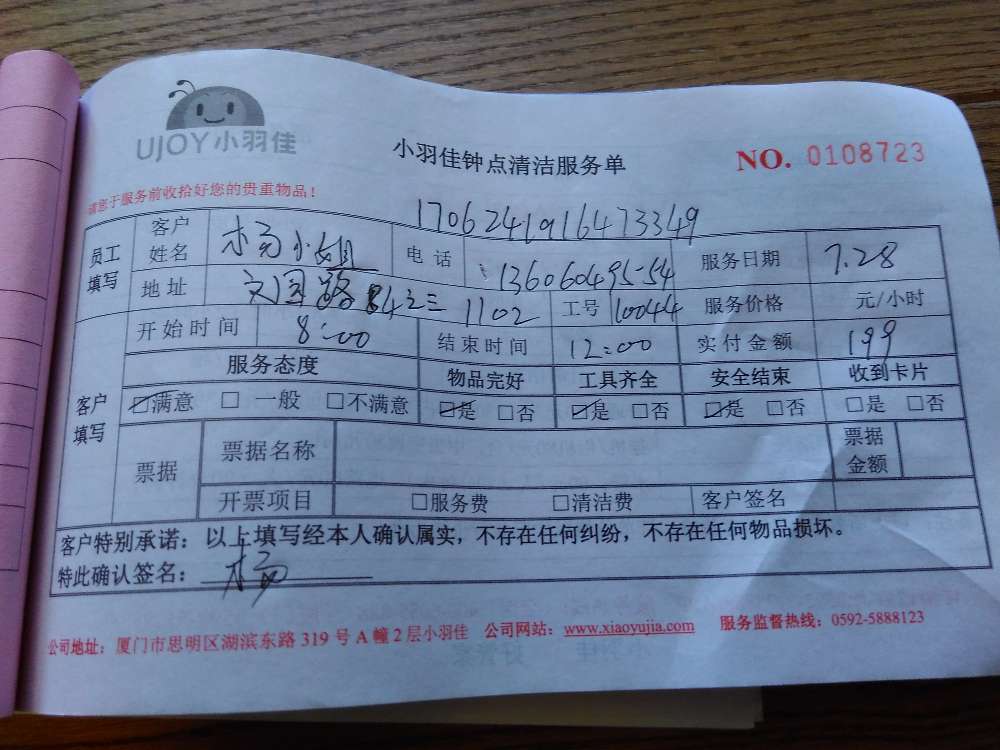 UJOY小羽佳
小羽佳钟点清洁服务单
NO. 0108723
请您于服务前收拾好您的贵重物品！
1706241916473349
员工填写 客户姓名 杨小姐 电话 13606049554 服务日期 7.28
地址 文园路84之二 1102 工号 10044 服务价格 元/小时
客户填写 开始时间 8:00 结束时间 12:00 实付金额 199
服务态度 物品完好 工具齐全 安全结束 收到卡片
☑满意 □一般 □不满意 ☑是 □否 ☑是 □否 ☑是 □否 □是 □否
票据 票据名称 票据金额
开票项目 □服务费 □清洁费 客户签名
客户特别承诺：以上填写经本人确认属实，不存在任何纠纷，不存在任何物品损坏。
特此确认签名：杨
公司地址：厦门市思明区湖滨东路 319 号 A 幢 2 层小羽佳 公司网站：www.xiaoyujia.com 服务监督热线：0592-5888123